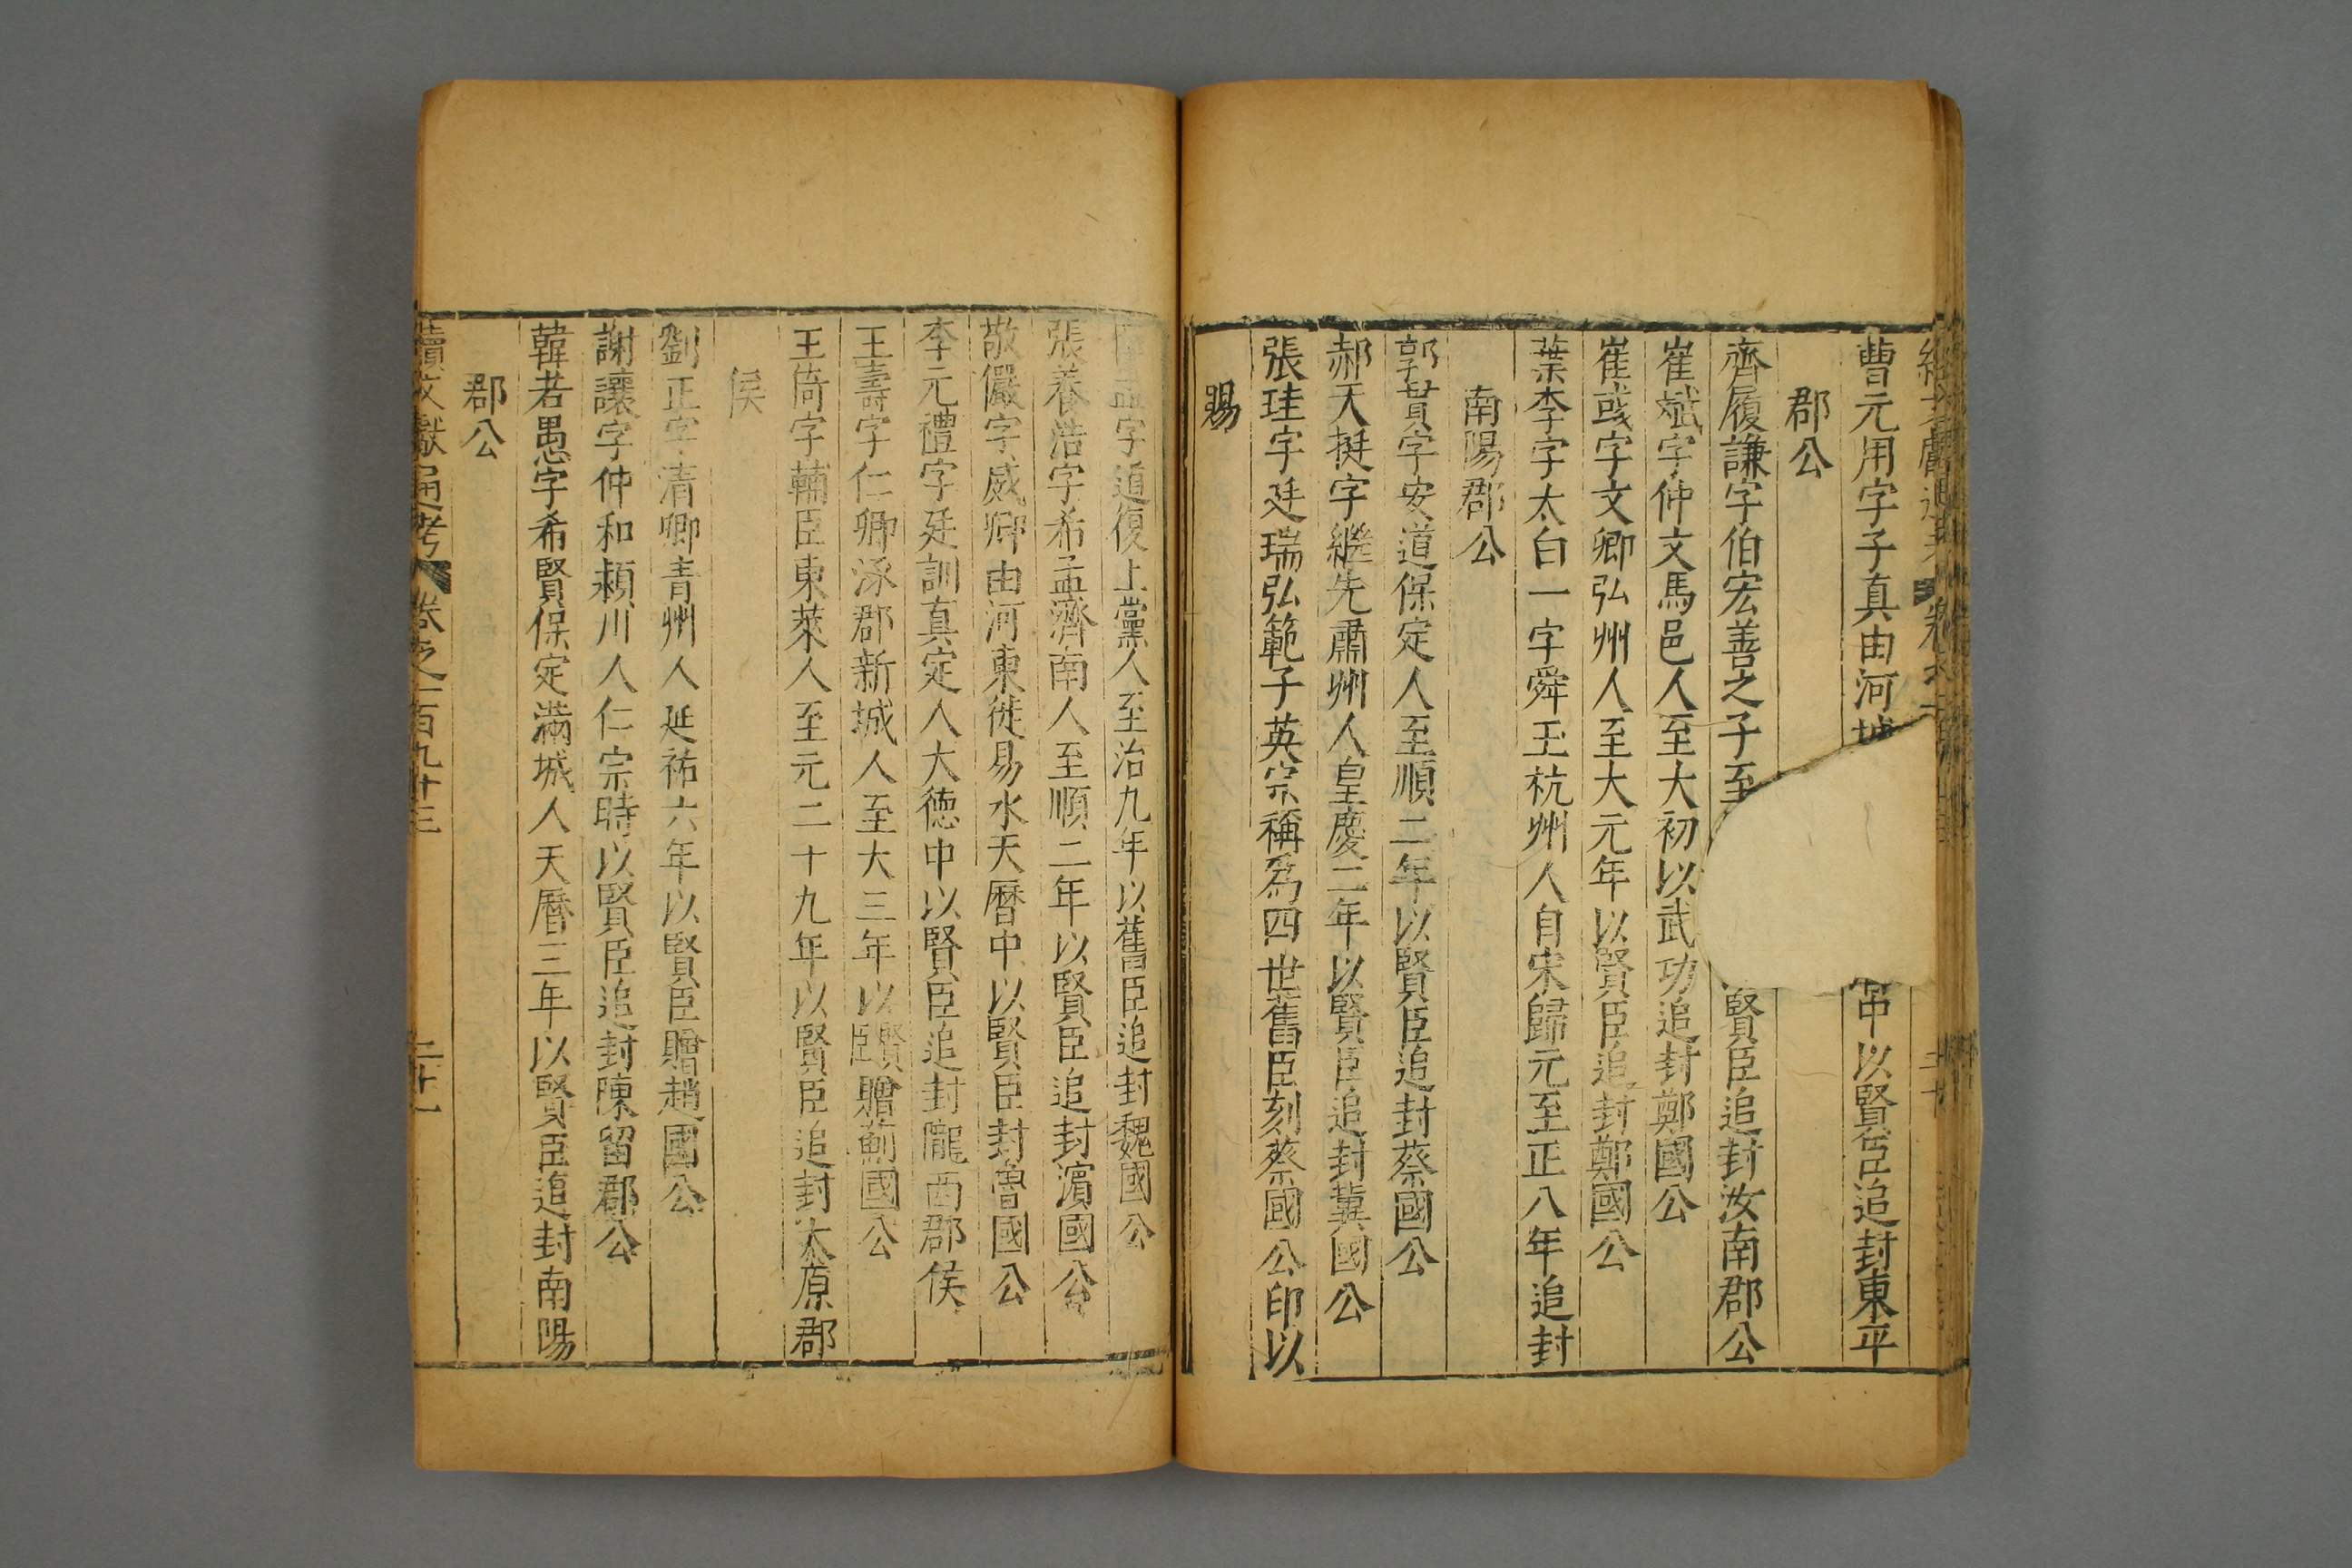 曹元用字子真由河城 中以賢臣追封東平
郡公
齊履謙字伯宏善之子至 賢臣追封汝南郡公
崔斌字仲文馬邑人至大初以武功追封鄭國公
崔彧字文卿弘州人至大元年以賢臣追封鄭國公
葉李字太白一字舜玉杭州人自宋歸元至正八年追封
南陽郡公
郭貫字安道保定人至順二年以賢臣追封蔡國公
郝天挺字繼先肅州人皇慶二年以賢臣追封冀國公
張珪字廷瑞弘範子英宗稱為四世舊臣刻蔡國公印以
賜
孟字道復上黨人至治九年以舊臣追封魏國公
張養浩字希孟濟南人至順二年以賢臣追封濱國公
敬儼字威卿由河東徙易水天曆中以賢臣封魯國公
李元禮字廷訓真定人大德中以賢臣追封隴西郡侯
王壽字仁卿涿郡新城人至大三年以賢臣贈薊國公
王倚字輔臣東萊人至元二十九年以賢臣追封太原郡
侯
劉正字清卿青州人延祐六年以賢臣贈趙國公
謝讓字仲和潁川人仁宗時以賢臣追封陳留郡公
韓若愚字希賢保定滿城人天曆三年以賢臣追封南陽
郡公
續文獻通考 卷之一百九十三 二十一